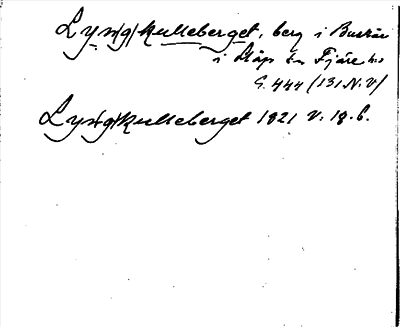 Lysn(g)kulleberget, berg i Buskär
i Släp sn Fjäre hd
G. 444 (131 N.V)
Lysn(g)kulleberget 1921 v. 18. b.